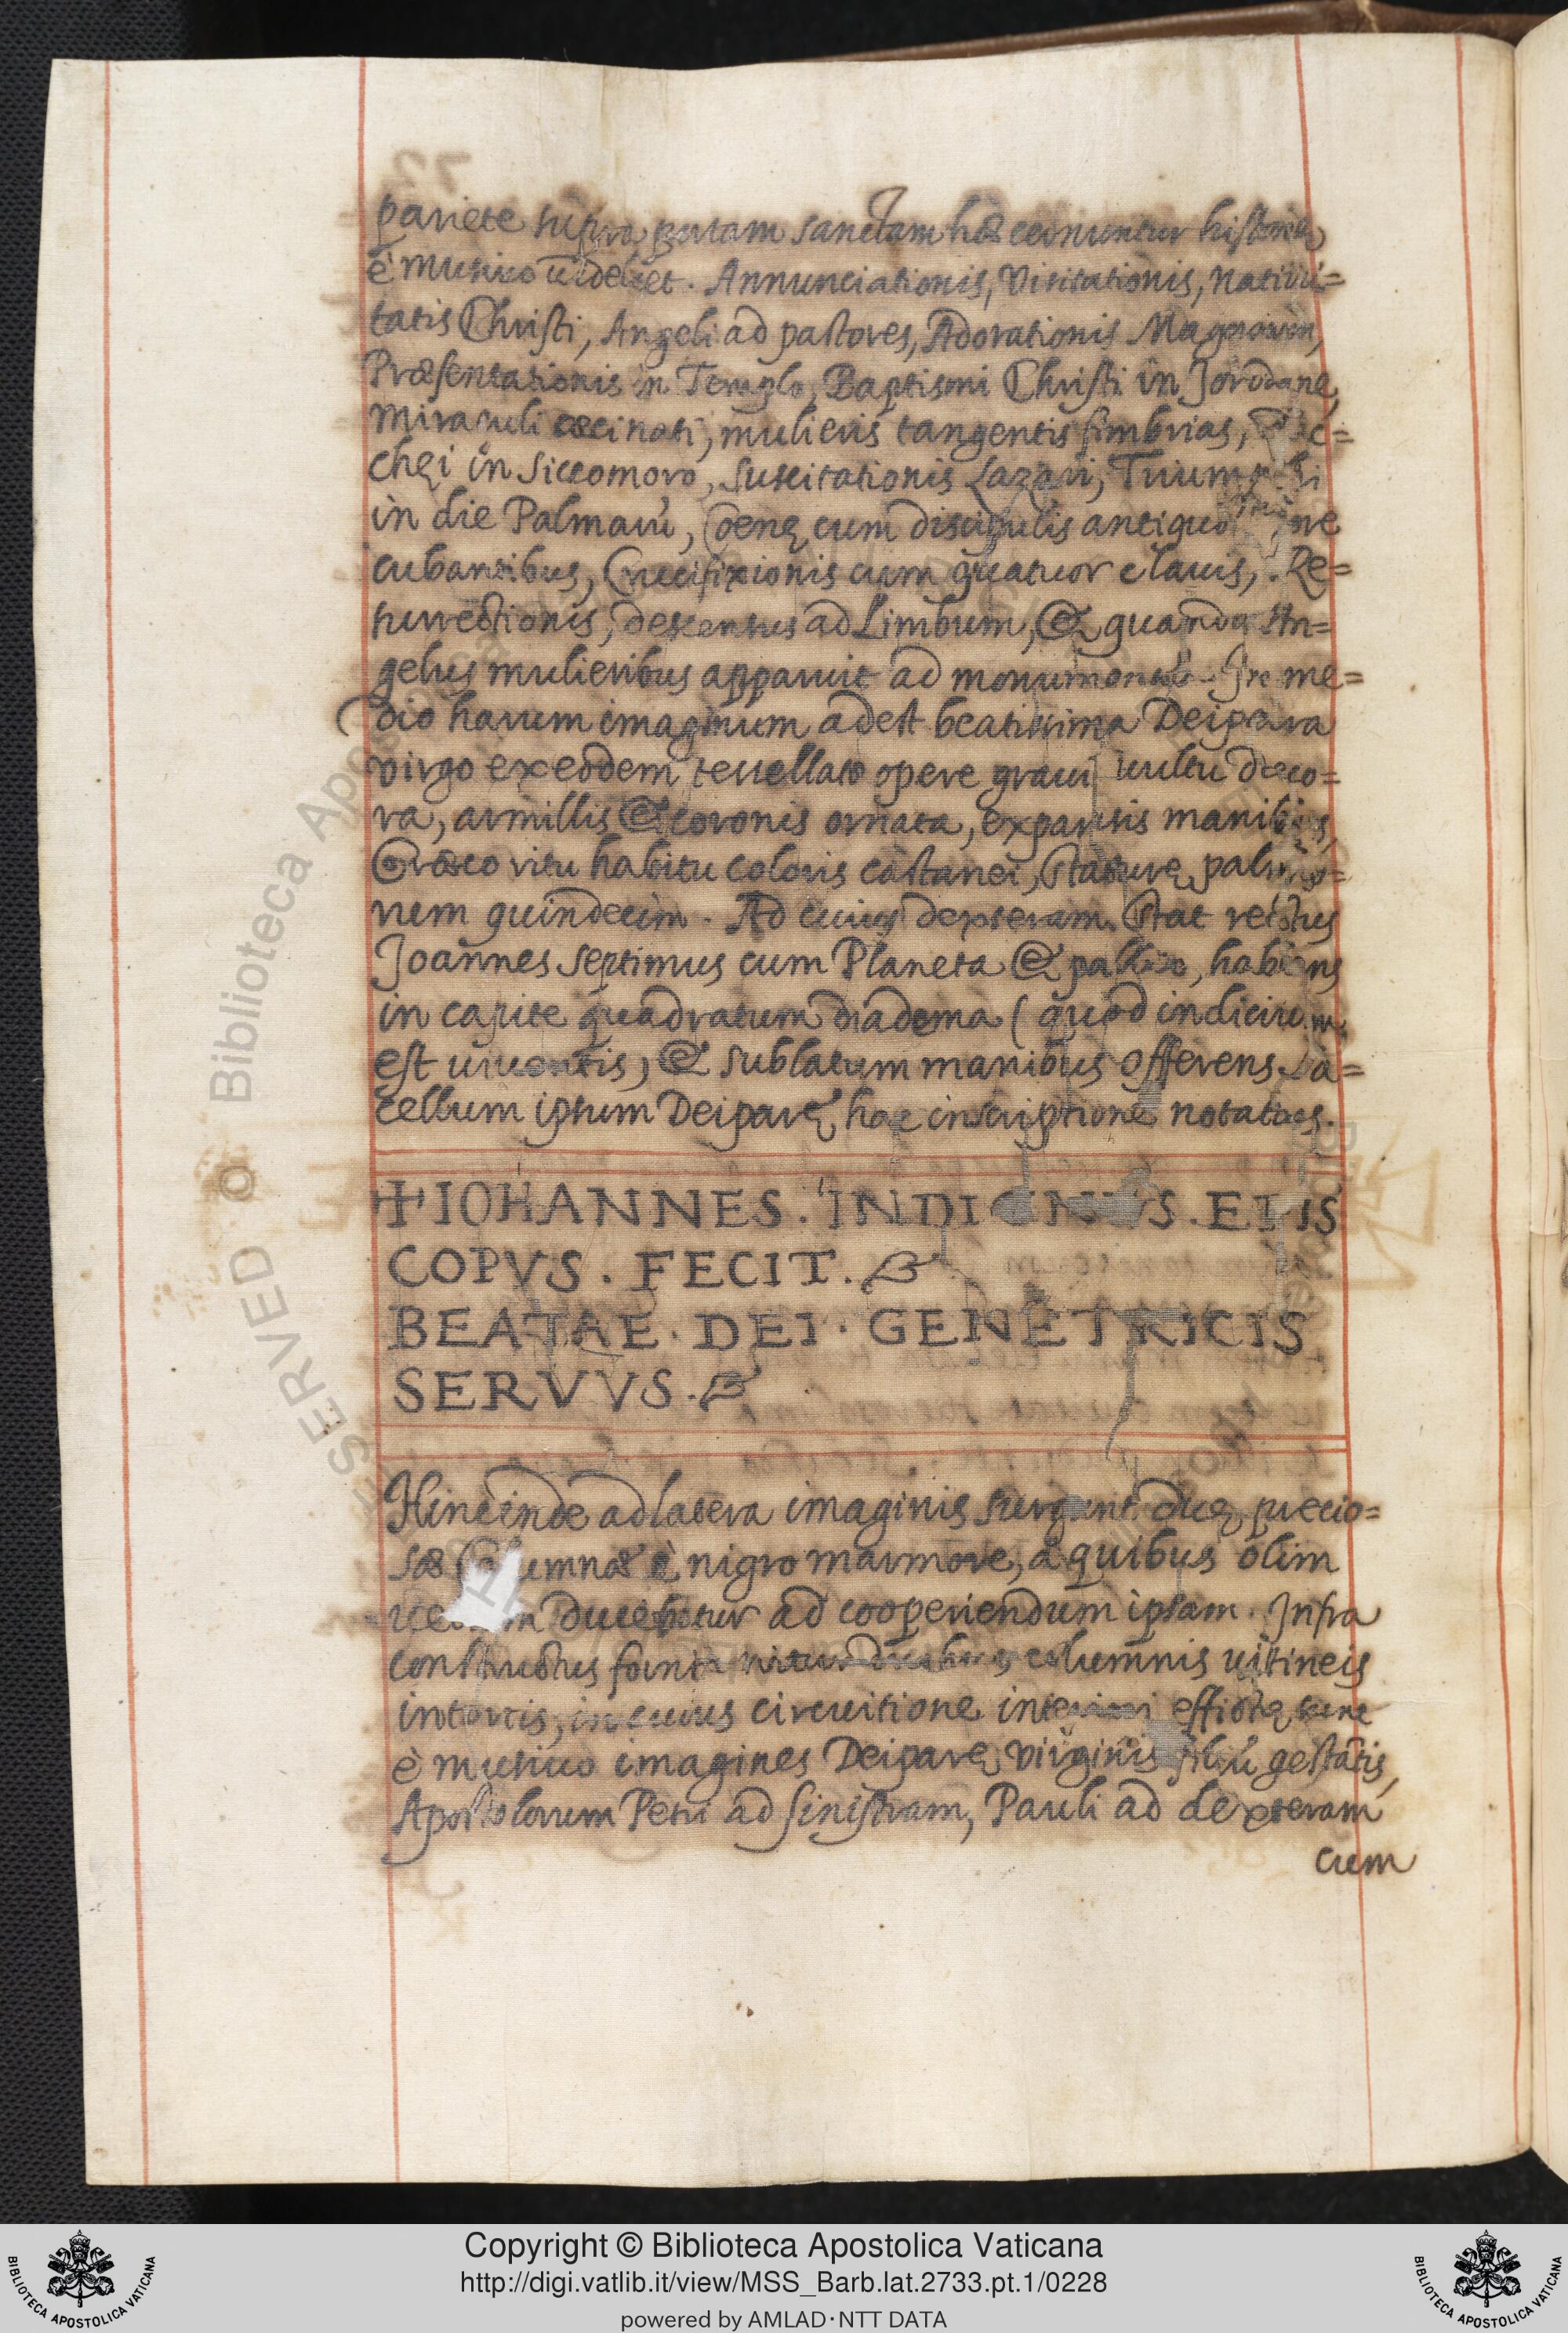 pariete supra portam sanctam hæ cernuntur historiæ
è musiuo uidelicet. Annunciationis, Visitationis, natiui=
tatis Christi, Angeli ad pastores, Adorationis Magorum,
Præsentationis in Templo, Baptismi Christi in Jordane,
miraculi cæci nati, mulieris tangentis fimbrias,
chęi in siccomoro, suscitationis Lazari, Triumphi
in die Palmarũ, Cenę cum discipulis antiquo more
cubantibus, Crucifixionis cum quatuor clauis, Re=
surrectionis, descensus ad Limbum, & quando An=
gelus mulieribus apparuit ad monumentũ. In me=
dio harum imaginum adest beatissima Deipara
virgo ex eodem tessellato opere graui uultu deco=
ra, armillis & coronis ornata, expansis manibus,
Græco ritu habitu coloris castanei, staturę palmo=
rum quindecim. Ad cuius dexteram stat rectus
Joannes septimus cum Planeta & pallio, habens
in capite quadratum diadema (quod indicium
est uiuentis) & sublatum manibus offerens Sa=
cellum ipsum Deiparę hac inscriptione notatus.
+ IOHANNES. INDIGNVS. EPIS
COPVS. FECIT.
BEATAE. DEI. GENETRICIS
SERVVS.
Hinc inde ad latera imaginis surgunt duę precio=
sæ Columnæ è nigro marmore, a quibus olim
uelum ducebatur ad cooperiendum ipsam. Infra
constructus columnis uitineis
intortis, in cuius circuitione interiori effictę sunt
è musiuo imagines Deiparę virginis filiũ gestãtis,
Apostolorum Petri ad sinistram, Pauli ad dexteram
cum
Biblioteca Apostolica Vaticana
Copyright © Biblioteca Apostolica Vaticana
http://digi.vatlib.it/view/MSS_Barb.lat.2733.pt.1/0228
powered by AMLAD·NTT DATA
BIBLIOTECA APOSTOLICA VATICANA
BIBLIOTECA APOSTOLICA VATICANA